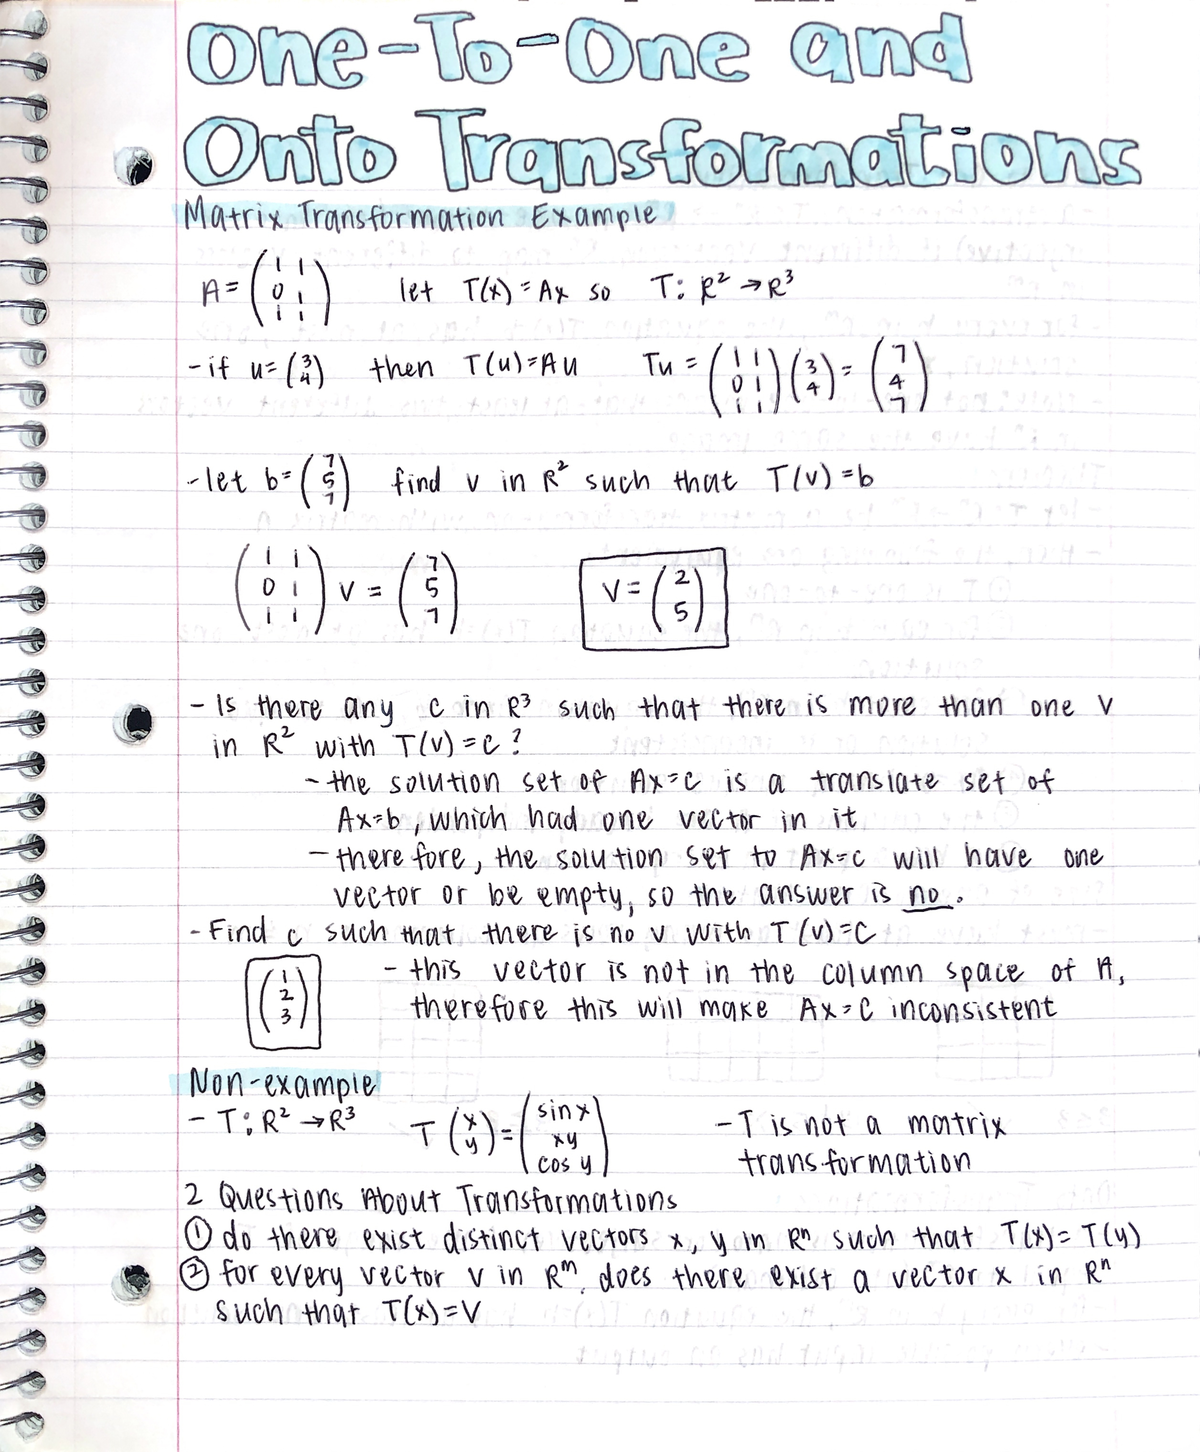 One-To-One and
Onto Transformations
Matrix Transformation Example
A = (1 1; 0 1; 1 1) let T(x) = Ax so T: R² → R³
- if u = (3; 4) then T(u) = Au Tu = (1 1; 0 1; 1 1) (3; 4) = (7; 4; 7)
- let b = (7; 5; 7) find v in R² such that T(v) = b
(1 1; 0 1; 1 1) v = (7; 5; 7) v = (2; 5)
- Is there any c in R³ such that there is more than one v
in R² with T(v) = c ?
- the solution set of Ax=c is a translate set of
Ax=b, which had one vector in it
- therefore, the solution set to Ax=c will have one
vector or be empty, so the answer is no.
- Find c such that there is no v with T(v)=c
(1; 2; 3) - this vector is not in the column space of A,
therefore this will make Ax=c inconsistent
Non-example
- T: R² → R³ T (x; y) = (sin x; xy; cos y) - T is not a matrix
transformation
2 Questions About Transformations
① do there exist distinct vectors x, y in Rⁿ such that T(x) = T(y)
② for every vector v in Rᵐ, does there exist a vector x in Rⁿ
such that T(x)=v